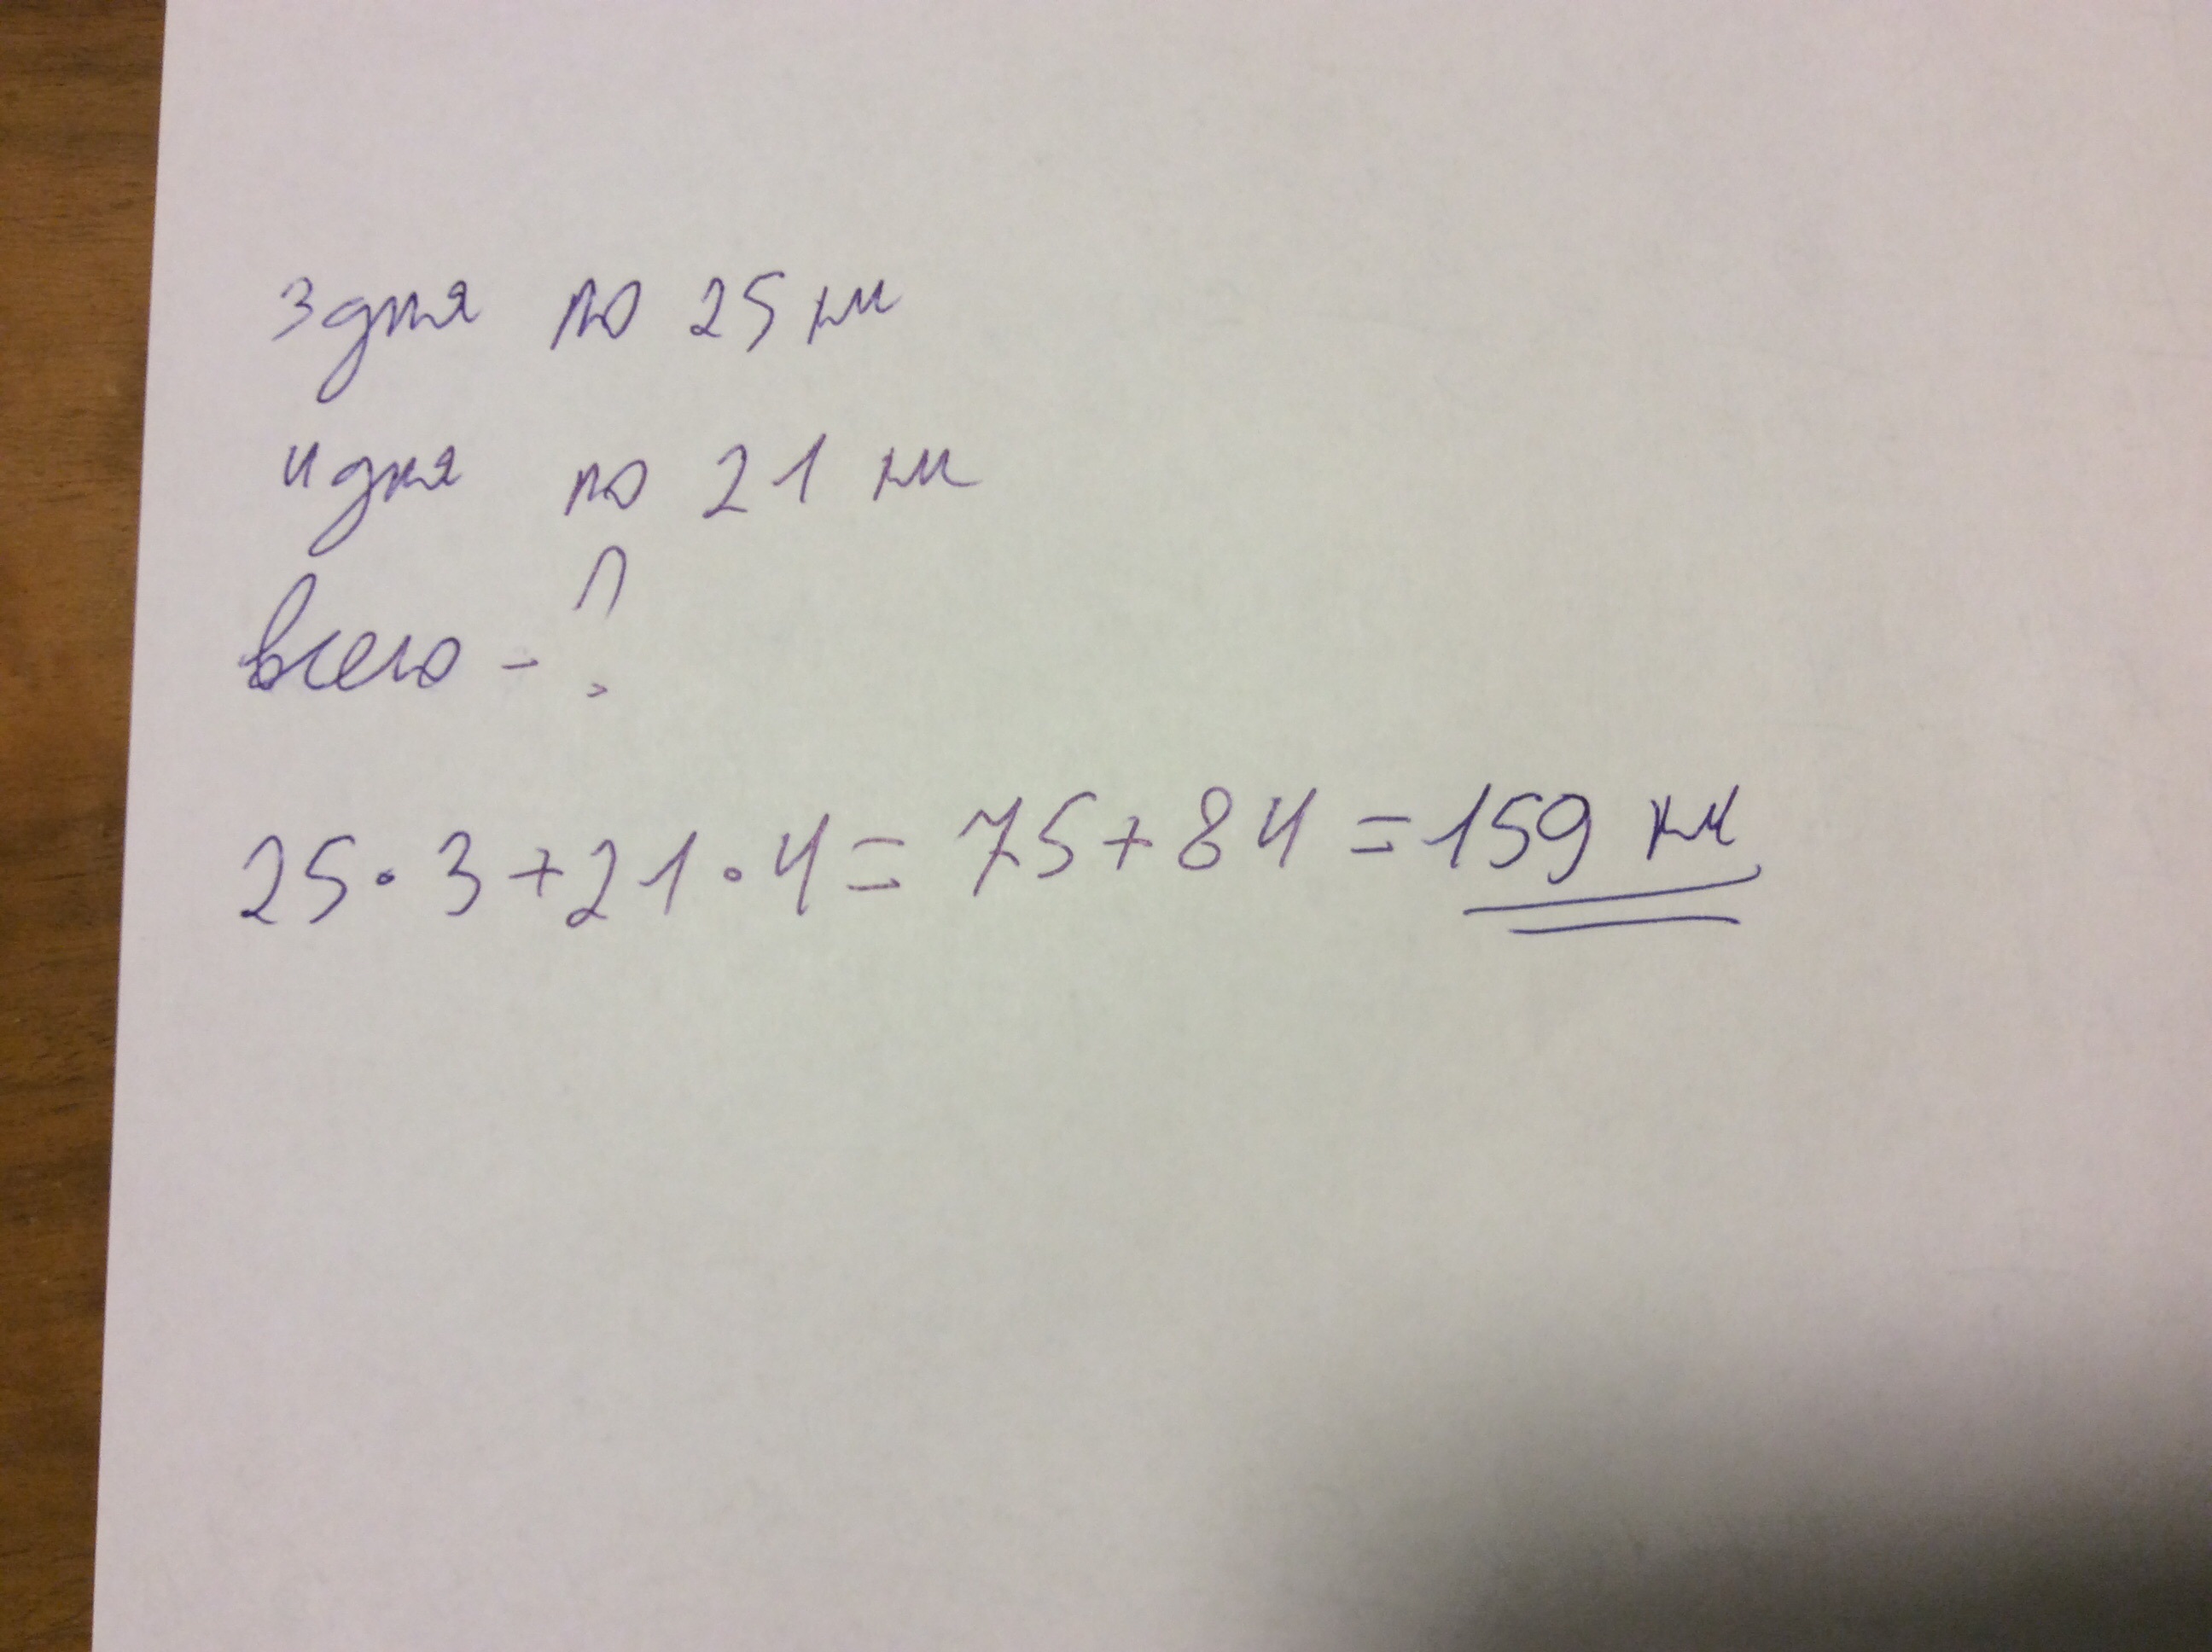 3 дня по 25 км
4 дня по 21 км
всего - ?
25 · 3 + 21 · 4 = 75 + 84 = 159 км